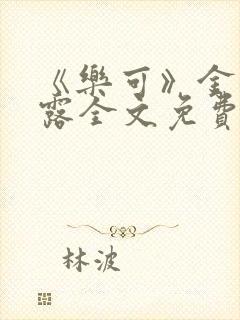 《樂可》金
露全文免費
林波